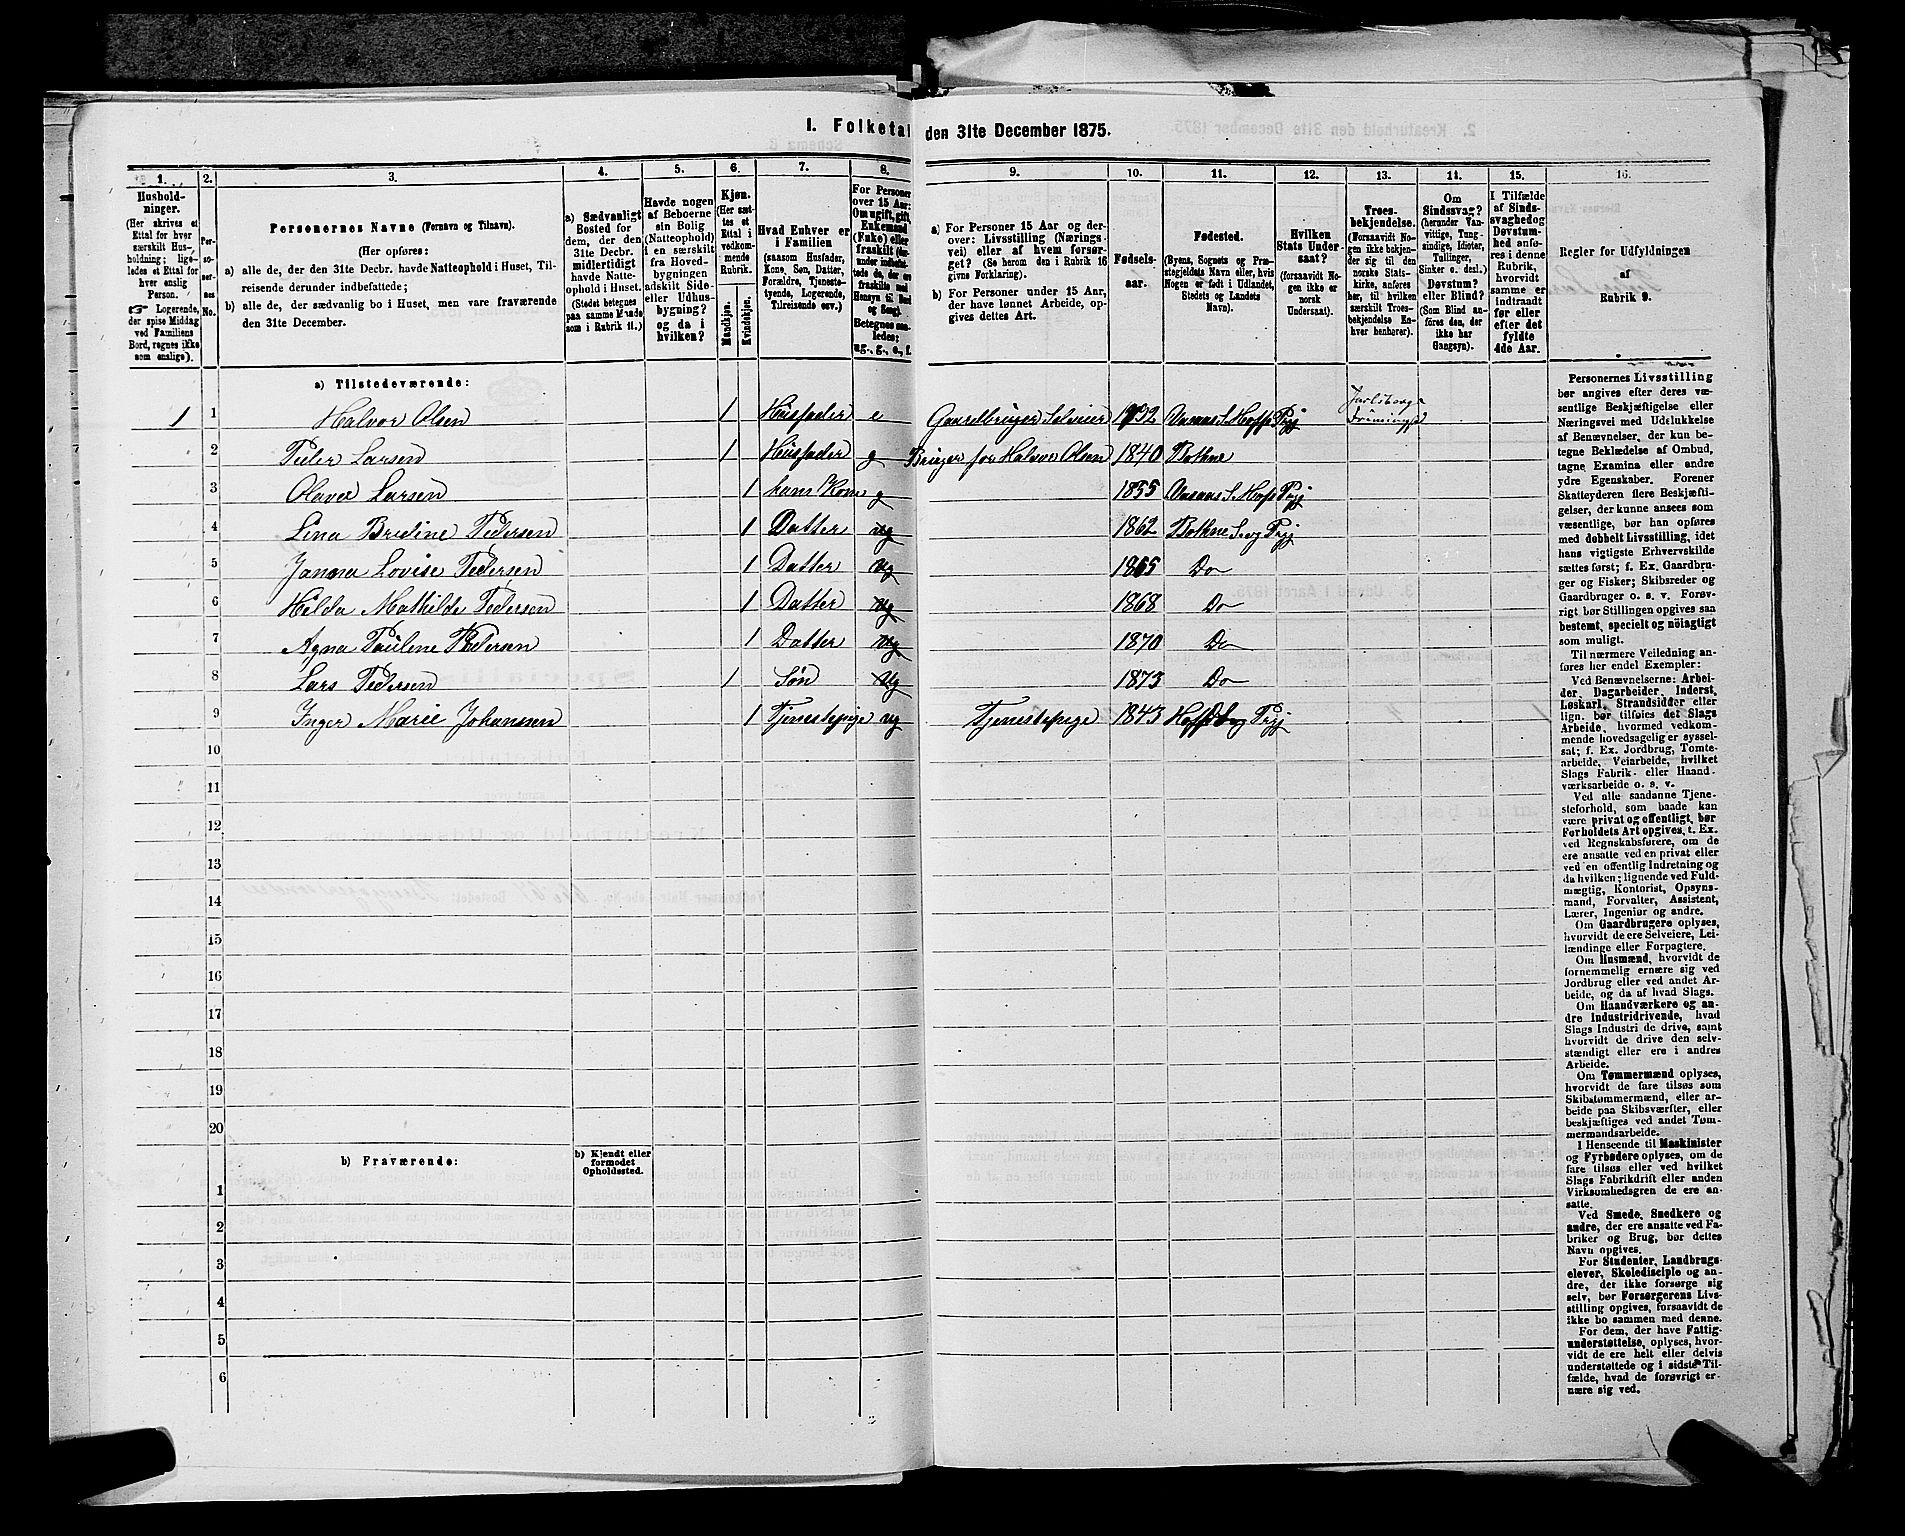 I. Folketal den 31te December 1875.
1. 2. 3. 4. 5. 6. 7. 8. 9. 10. 11. 12. 13. 14. 15. 16.
Hushold-
ninger.
(Her skrives et
Ettal for hver
særskilt Hus-
holdning; lige-
ledes et Ettal for
hver enslig
Person.
☞ Logerende,
der spise Middag
ved Familiens
Bord, regnes ikke
som enslige).
Per-
so-
ner-
nes
No.
Personernes Navne (Fornavn og Tilnavn).
(Her opføres:
a) alle de, der den 31te Decbr. havde Natteophold i Huset, Til-
reisende derunder indbefattede;
b) alle de, der sædvanlig bo i Huset, men vare fraværende
den 31te December.
a) Sædvanligt
Bosted for
dem, der den
31te Decbr.
midlertidigt
havde Natte-
ophold i Huset.
(Stedet betegnes
paa samme Maade
som i Rubrik 11.)
Havde nogen
af Beboerne
sin Bolig
(Natteophold)
i en særskilt
fra Hoved-
bygningen
adskilt Side-
eller Udhus-
bygning?
og da i
hvilken?
Kjøn.
(Her sæt-
tes et
Ettal i
vedkom-
mende
Rubrik.
Mandkjøn.
Kvindekjøn.
Hvad Enhver er
i Familien
(saasom Husfader,
Kone, Søn, Datter,
Forældre, Tjeneste-
tyende, Logerende,
Tilreisende osv.)
For Personer
over 15 Aar:
Om ugift, gift,
Enkemand
(Enke) eller
fraskilt
Betegnes saa-
ledes:
ug., g., e., f.
a) For Personer 15 Aar og der-
over: Livsstilling (Nærings-
vei) eller af hvem forsør-
get? (Se herom den i Rubrik 16
givne Forklaring).
b) For Personer under 15 Aar,
der have lønnet Arbeide, op-
gives dettes Art.
Fødsels-
aar.
Fødested.
(Byens, Sognets og Præ-
stegjeldets Navn eller, hvis
Nogen er født i Udlandet,
Stedets og Landets
Navn).
Hvilken
Stats Under-
saat?
(forsaavidt No-
gen ikke er
norsk
Undersaat).
Troes-
bekjendelse.
(Forsaavidt No-
gen ikke bekjen-
der sig til den
norske Stats-
kirke, anføres
her, til hvilken
særskilt Troes-
bekjendelse En-
hver henhører).
Om
Sindssvag?
(herunder Van-
vittige, Tung-
sindige, Idioter,
Tullinger,
Sinker o. desl.)
Døvstum?
eller Blind?
(Som Blind an-
føres den, der
ikke har
Gangsyn).
I Tilfælde
af Sinds-
svaghed og
Døvstum-
hed anfø-
res i denne
Rubrik,
hvorvidt
samme er
indtraadt
før eller
efter det
fyldte
4de Aar.
Regler for Udfyldningen
af
Rubrik 9.
a) Tilstedeværende:
1 1 Halvor Olsen 1 Husfader e Gaardbruger Selveier 1832 Vasaas S. Hoffs Pgj Jarlsberg
2 Peder Larsen 1 Husfader g Bruger for Halvor Olsen 1840 Bothne
3 Olava Larsen 1 hans Kone g 1835 Vasaas S. Hofs Pgj
4 Lina Bredine Pedersen 1 Datter ug 1862 Bothne S. og Pgj
5 Janna Lovise Pedersen 1 Datter ug 1865 Do
6 Hilda Mathilde Pedersen 1 Datter ug 1868 Do
7 Agna Pauline Pedersen 1 Datter ug 1870 Do
8 Lars Pedersen 1 Søn ug 1873 Do
9 Inger Marie Johansen 1 Tjenestepige ug Tjenestepige 1843 Hoffs S og Pgj
10
11
12
13
14
15
16
17
18
19
20
b) Fraværende:
b) Kjendt eller
formodet
Opholdssted.
1
2
3
4
5
6
Personernes Livsstilling
bør angives efter deres væ-
sentlige Beskjæftigelse eller
Næringsvei med Udelukkelse
af Benævnelser, der kun be-
tegne Beklædelse af Ombud,
tagne Examina eller andre
ydre Egenskaber. Forener
Skatteyderen flere Beskjæfti-
gelser, der kunne ansees som
væsentlige, bør han opføres
med dobbelt Livsstilling, idet
hans vigtigste Erhvervskilde
sættes først; f. Ex. Gaardbru-
ger og Fisker; Skibsreder og
Gaardbruger o. s. v. Forøv-
rigt bør Stillingen opgives saa
bestemt, specielt og nöiagtigt
som muligt.
Til nærmere Veiledning an-
føres her endel Exempler:
Ved Benævnelserne: Arbei-
der, Dagarbeider, Inderst,
Løskarl, Strandsidder eller
lign. bør tilføies det Slags
Arbeide, hvormed vedkom-
mende hovedsagelig er syssel-
sat; f. Ex. Jordbrug, Tomte-
arbeide, Veiarbeide, hvilket
Slags Fabrik- eller Haand-
værksarbeide o. s. v.
Ved alle saadanne Tjene-
steforhold, som baade kan
være privat og offentligt, bør
Forholdets Art opgives, t. Ex.
ved Regnskabsførere, om de
ere ansatte ved en privat eller
ved en offentlig Indretning og
da hvilken; lignende ved Fuld-
mægtig, Kontorist, Opsyns-
mand, Forvalter, Assistent,
Lærer, Ingeniør og andre.
Om Gaardbrugere oplyses,
hvorvidt de ere Selveiere, Lei-
lændinge eller Forpagtere.
Om Husmænd, hvorvidt de
fornemmelig ernære sig ved
Jordbrug eller ved andet Ar-
beide, og da af hvad Slags.
Om Haandværkere og an-
dre Industridrivende, hvad
Slags Industri de drive, samt
hvorvidt de drive den selv-
stændigt eller ere i andres
Arbeide.
Om Tømmermænd oplyses,
hvorvidt de fare tilsøs som
Skibstømmermænd, eller ar-
beide paa Skibsværfter, eller
beskjæftiges ved andet Tøm-
mermandsarbeide.
I Henseende til Maskinister
og Fyrbødere oplyses, om de
fare tilsøs eller ved hvilket
Slags Fabrikdrift eller anden
Virksomhedsgren de ere an-
satte.
Ved Smede, Snedkere og
andre, der ere ansatte ved Fa-
briker og Brug, bør dettes
Navn opgives.
For Studenter, Landbrugs-
elever, Skoledisciple og an-
dre, der ikke forsørge sig
selv, bør Forsørgerens Livs-
stilling opgives, forsaavidt de
ikke bo sammen med denne.
For dem, der have Fattig-
understøttelse, oplyses, hvor-
vidt de ere helt eller delvis
understøttede og i sidste Til-
fælde, hvad de forøvrigt er-
nære sig ved.